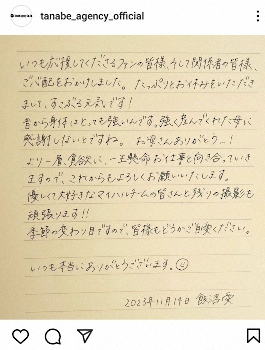 tanabe_agency_official
いつも応援してくださるファンの皆様、そして関係者の皆様、
ご心配をおかけしました。たっぷりとお休みをいただき
まして、すこぶる元気です！
昔から身体はとっても強いんです。強く産んでくれた母に
感謝しないとですね。お母さんありがとう〜！
より一層、貪欲に、一生懸命お仕事と向き合っていき
ますので、これからもよろしくお願いいたします。
優しくて大好きなマイハルチームの皆さんと残りの撮影も
頑張ります!!
季節の変わり目ですので、皆様もどうかご自愛ください。
いつも本当にありがとうございます。
2023年11月19日